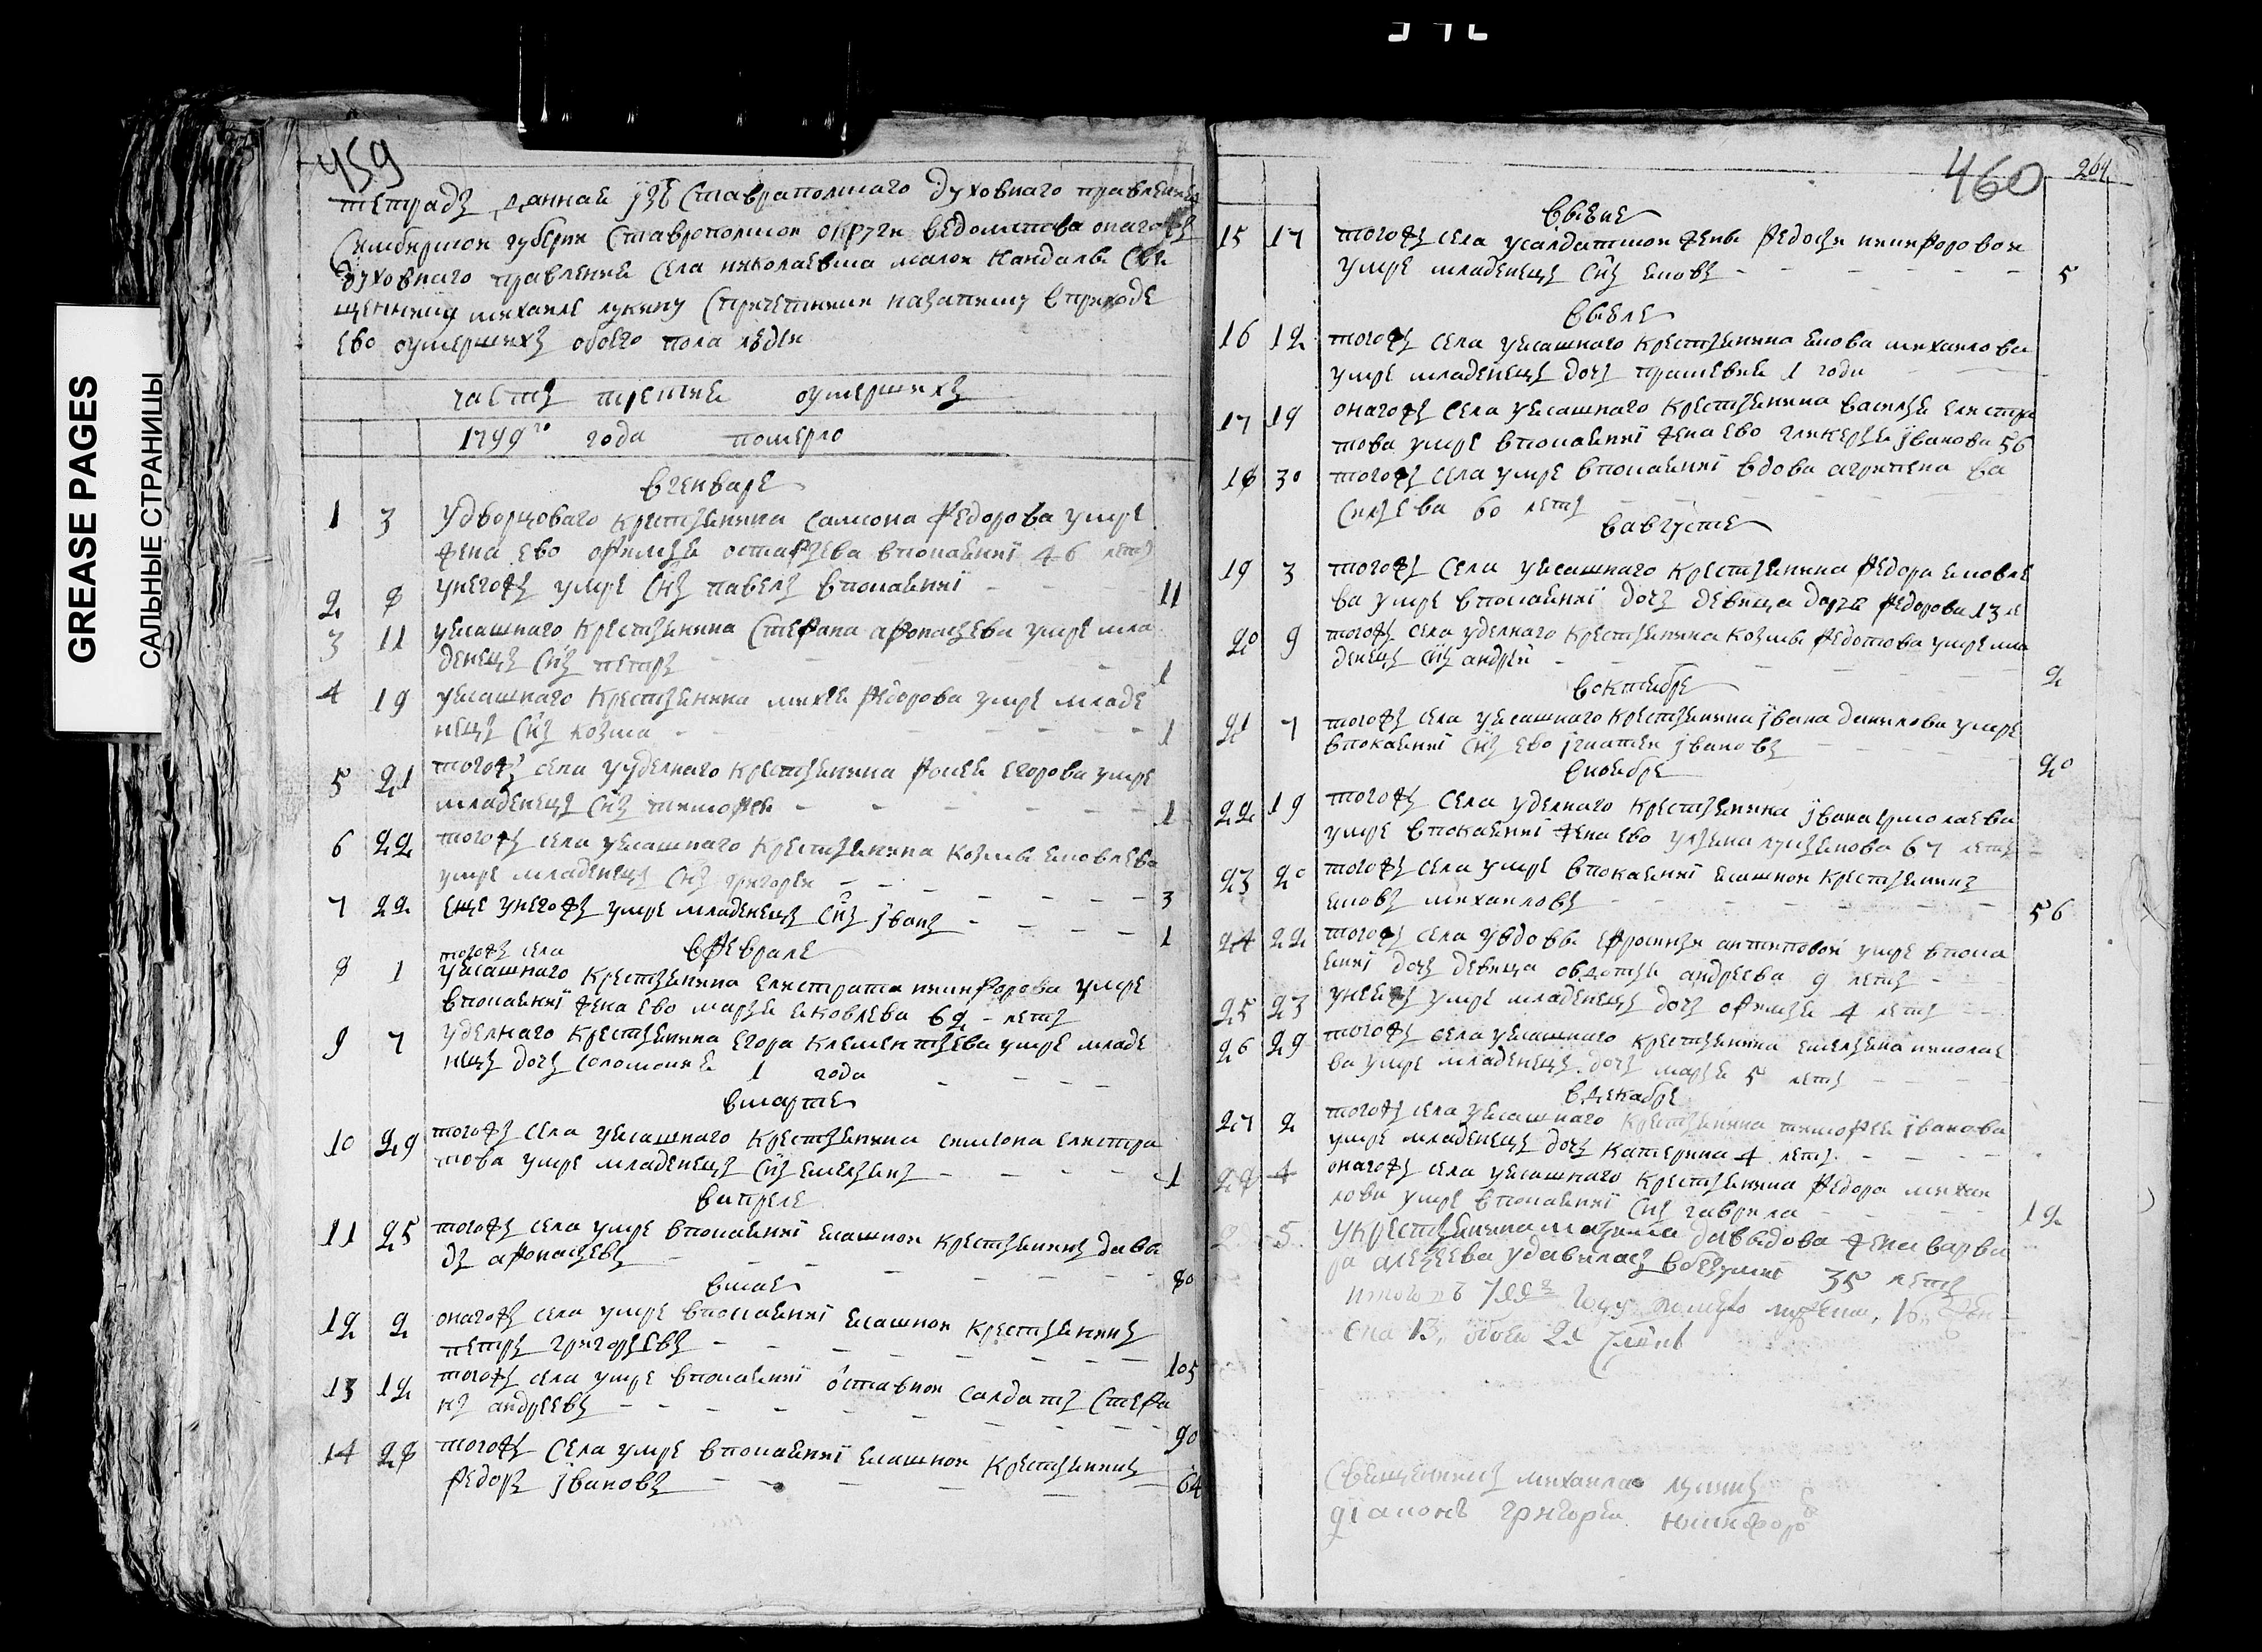 GREASE PAGES
САЛЬНЫЕ СТРАНИЦЫ
459
тетрадь данная узъ Ставрополскаго духовнаго правления
Симбирской губернии Ставрополской округи ведомства онагожъ
духовнаго правления села николаевска малой Кандалы Свя
щеннику михаиле лукину Спричетники назаписку вприходе
ево оумершихъ обоего пола людей
часть третия оумершихъ
1799го года померло
вгенваре
1 3 удворцоваго крестьянина самсона федорова умре
жена ево офимья остафьева впокаянни 46 летъ
2 8 унегожъ умре снъ павелъ впокаянни 11
3 11 уясашнаго крестьянина Стефана афонасьева умре мла
денецъ снъ петръ 1
4 19 уясашнаго крестьянина михея федорова умре младе
нецъ снъ козма 1
5 21 тогожъ села ууделнаго крестьянина фокея егорова умре
младенецъ снъ тимофей 1
6 22 тогожъ села уясашнаго крестьянина козмы яковлева
умре младенецъ снъ григорей 3
7 22 еще унегожъ умре младенецъ снъ јванъ 1
вфеврале
8 1 тогожъ села
уясашнаго крестьянина елистрата никифорова умре
впокаянни жена ево марья яковлева 62 летъ
9 7 уделнаго крестьянина егора клементьева умре младе
нецъ дочь соломония 1 года
вмарте
10 29 тогожъ села уясашнаго крестьянина симиона елистра
това умре младенецъ снъ емельянъ 1
вапреле
11 25 тогожъ села умре впокаянни ясашной крестьянинъ давы
дъ афонасьевъ 80
вмае
12 2 онагожъ села умре впокаянни ясашной крестьянинъ
петръ григорьевъ 105
13 12 тогожъ села умре впокаянни оставной салдатъ Стефа
нъ андреевъ 90
14 28 тогожъ села умре впокаянни ясашной крестьянинъ
федоръ јвановъ 64
460
264
виюне
15 17 тогожъ села усалдатской жены федосьи никифоровой
умре младенецъ снъ яковъ 5
виюле
16 12 тогожъ села уясашнаго крестьянина якова михаилова
умре младенецъ дочь прасковия 1 годи
17 19 онагожъ села уясашнаго крестьянина василья елистра
това умре впокаянни жена ево гликерья јванова 56
18 30 тогожъ села умре впокаянни вдова агрипена ва
сильева 60 летъ
вавгусте
19 3 тогожъ села уясашнаго крестьянина федора яковле
ва умре впокаянни дочь девица дарья федорова 13 л
20 9 тогожъ села уделнаго крестьянина козмы федотова умре мла
денецъ снъ андрей 2
воктябре
21 7 тогожъ села уясашнаго крестьянина јвана данилова умре
впокаянни снъ ево јгнатей јвановъ 20
вноябре
22 19 тогожъ села уделнаго крестьянина јвана ермолаева
умре впокаянни жена ево ульяна лукьянова 67 летъ
23 20 тогожъ села умре впокаянни ясашной крестьянинъ
яковъ михаиловъ 56
24 22 тогожъ села увдовы ефросиньи антиповой умре впока
янни дочь девица овдотья андреева 9 летъ
25 23 унеяжъ умре младенецъ дочь офимья 4 летъ
26 29 тогожъ села уясашнаго крестьянина емельяна николае
ва умре младенецъ дочь марья 5 летъ
вдекабре
27 2 тогожъ села уясашнаго крестьянина тимофея јванова
умре младенецъ дочь катерина 4 летъ
28 4 онагожъ села уясашнаго крестьянина федора михаи
лова умре впокаянни снъ гаврила 12
2 5 укрестьянина давыдова жена варва
ра алексеева удавилась вбезумии 35 летъ
году мужеска 16 жен
ска 13, обоего 29 
Священникъ михаилъ лукинъ
диаконъ григорей никифоровъ